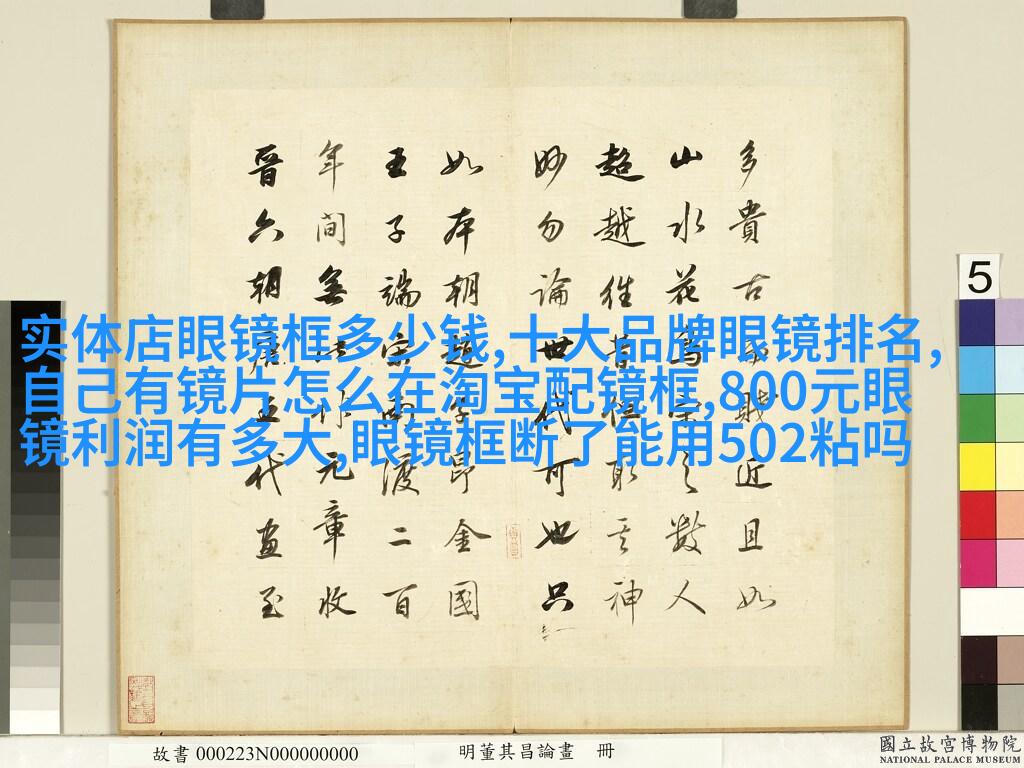 实体店眼镜框多少钱,十大品牌眼镜排名,
自己有镜片怎么在淘宝配镜框,800元眼
镜利润有多大,眼镜框断了能用502粘吗
多貴古賤近且如
山水花鳥宋之數人
超越往昔取其神
妙勿論世代可也只
如本朝趙子昂金國
王子端宋南渡二百
年間無此作元章收
晉六朝唐五代畫至
5
故書 000223N000000000
明董其昌論畫 冊
國立故宮博物院
NATIONAL PALACE MUSEUM